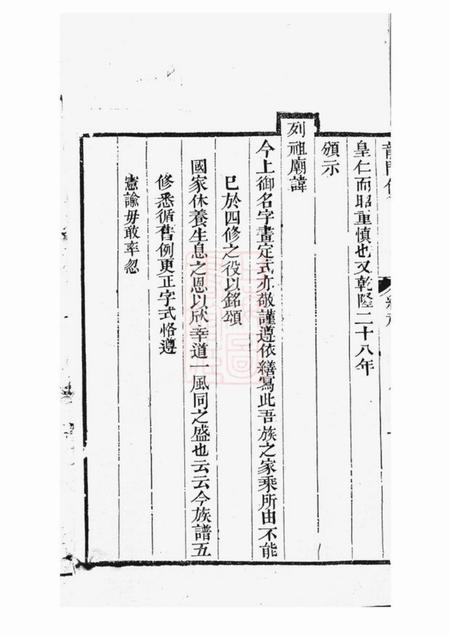 皇仁而昭重慎也又乾隆二十八年
頒示
列祖廟諱
今上御名字畫定式亦敬謹遵依繕寫此吾族之家乘所由不能
已於四修之役以銘頌
國家休養生息之恩以欣幸道 風同之盛也云云今族譜五
修悉循舊例更正字式恪遵
憲諭毋敢率忽